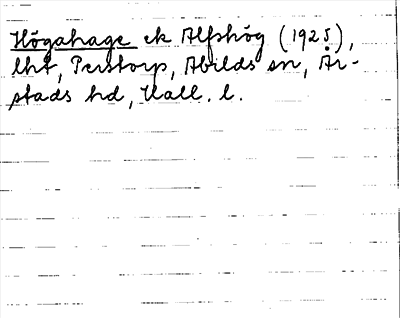 Högahage ek Alfshög (1925),
lht, Perstorp, Abilds sn, År-
stads hd, Hall. l.